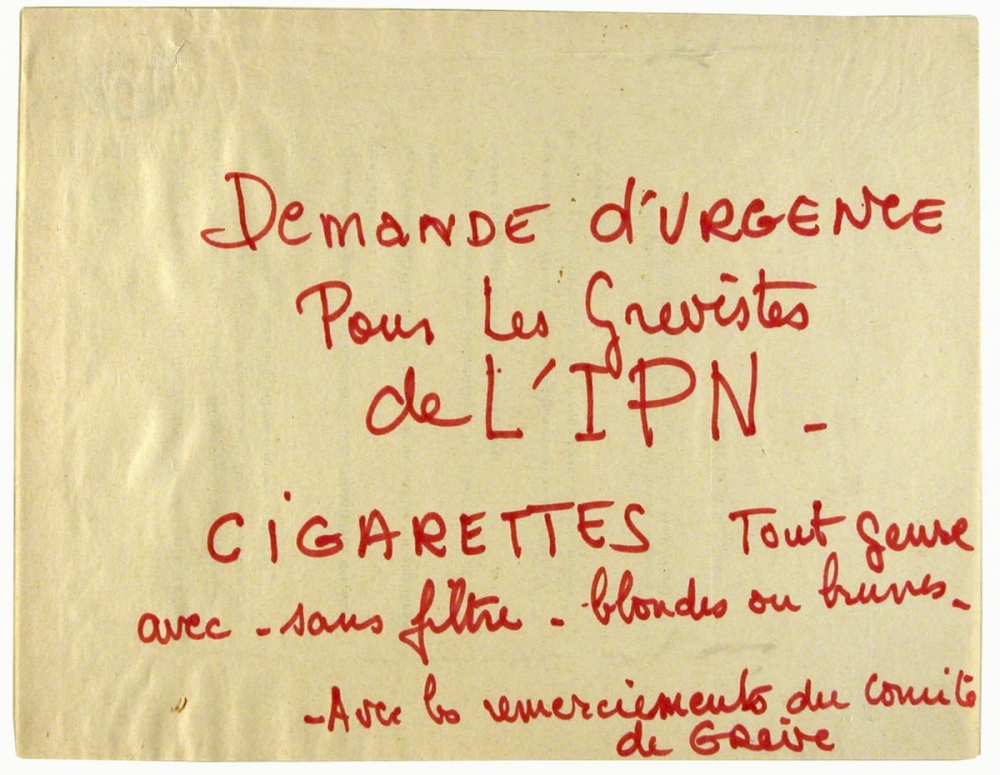 Demande d'urgence
Pour les Grevistes
de L'IPN -
CIGARETTES Tout genre
avec - sans filtre - blondes ou brunes -
- Avec les remerciements du Comité
de Greive